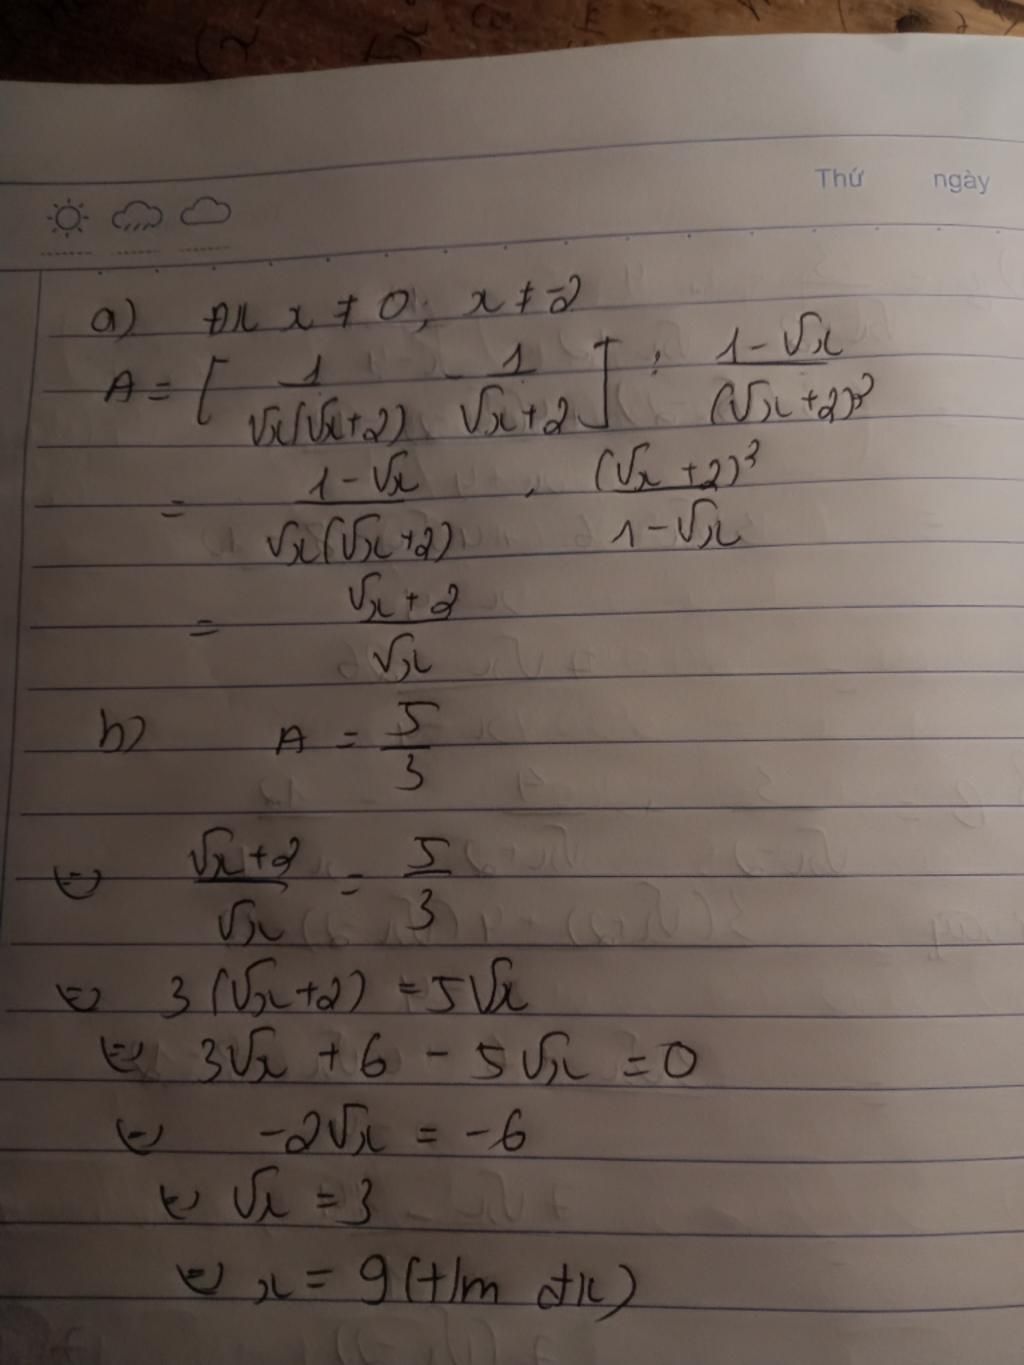 Thứ ngày
a) ĐK x ≠ 0; x ≠ -2
A = [ 1/(√x(√x+2)) - 1/(√x+2) ] : (1-√x)/(√x+2)²
= (1-√x)/(√x(√x+2)) . (√x+2)²/(1-√x)
= (√x+2)/√x
b) A = 5/3
⇔ (√x+2)/√x = 5/3
⇔ 3(√x+2) = 5√x
⇔ 3√x + 6 - 5√x = 0
⇔ -2√x = -6
⇔ √x = 3
⇔ x = 9 (t/m đk)